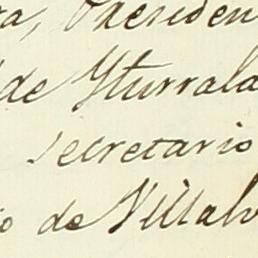 ra, Presiden
de Yturrala
secretario
o de Villalv